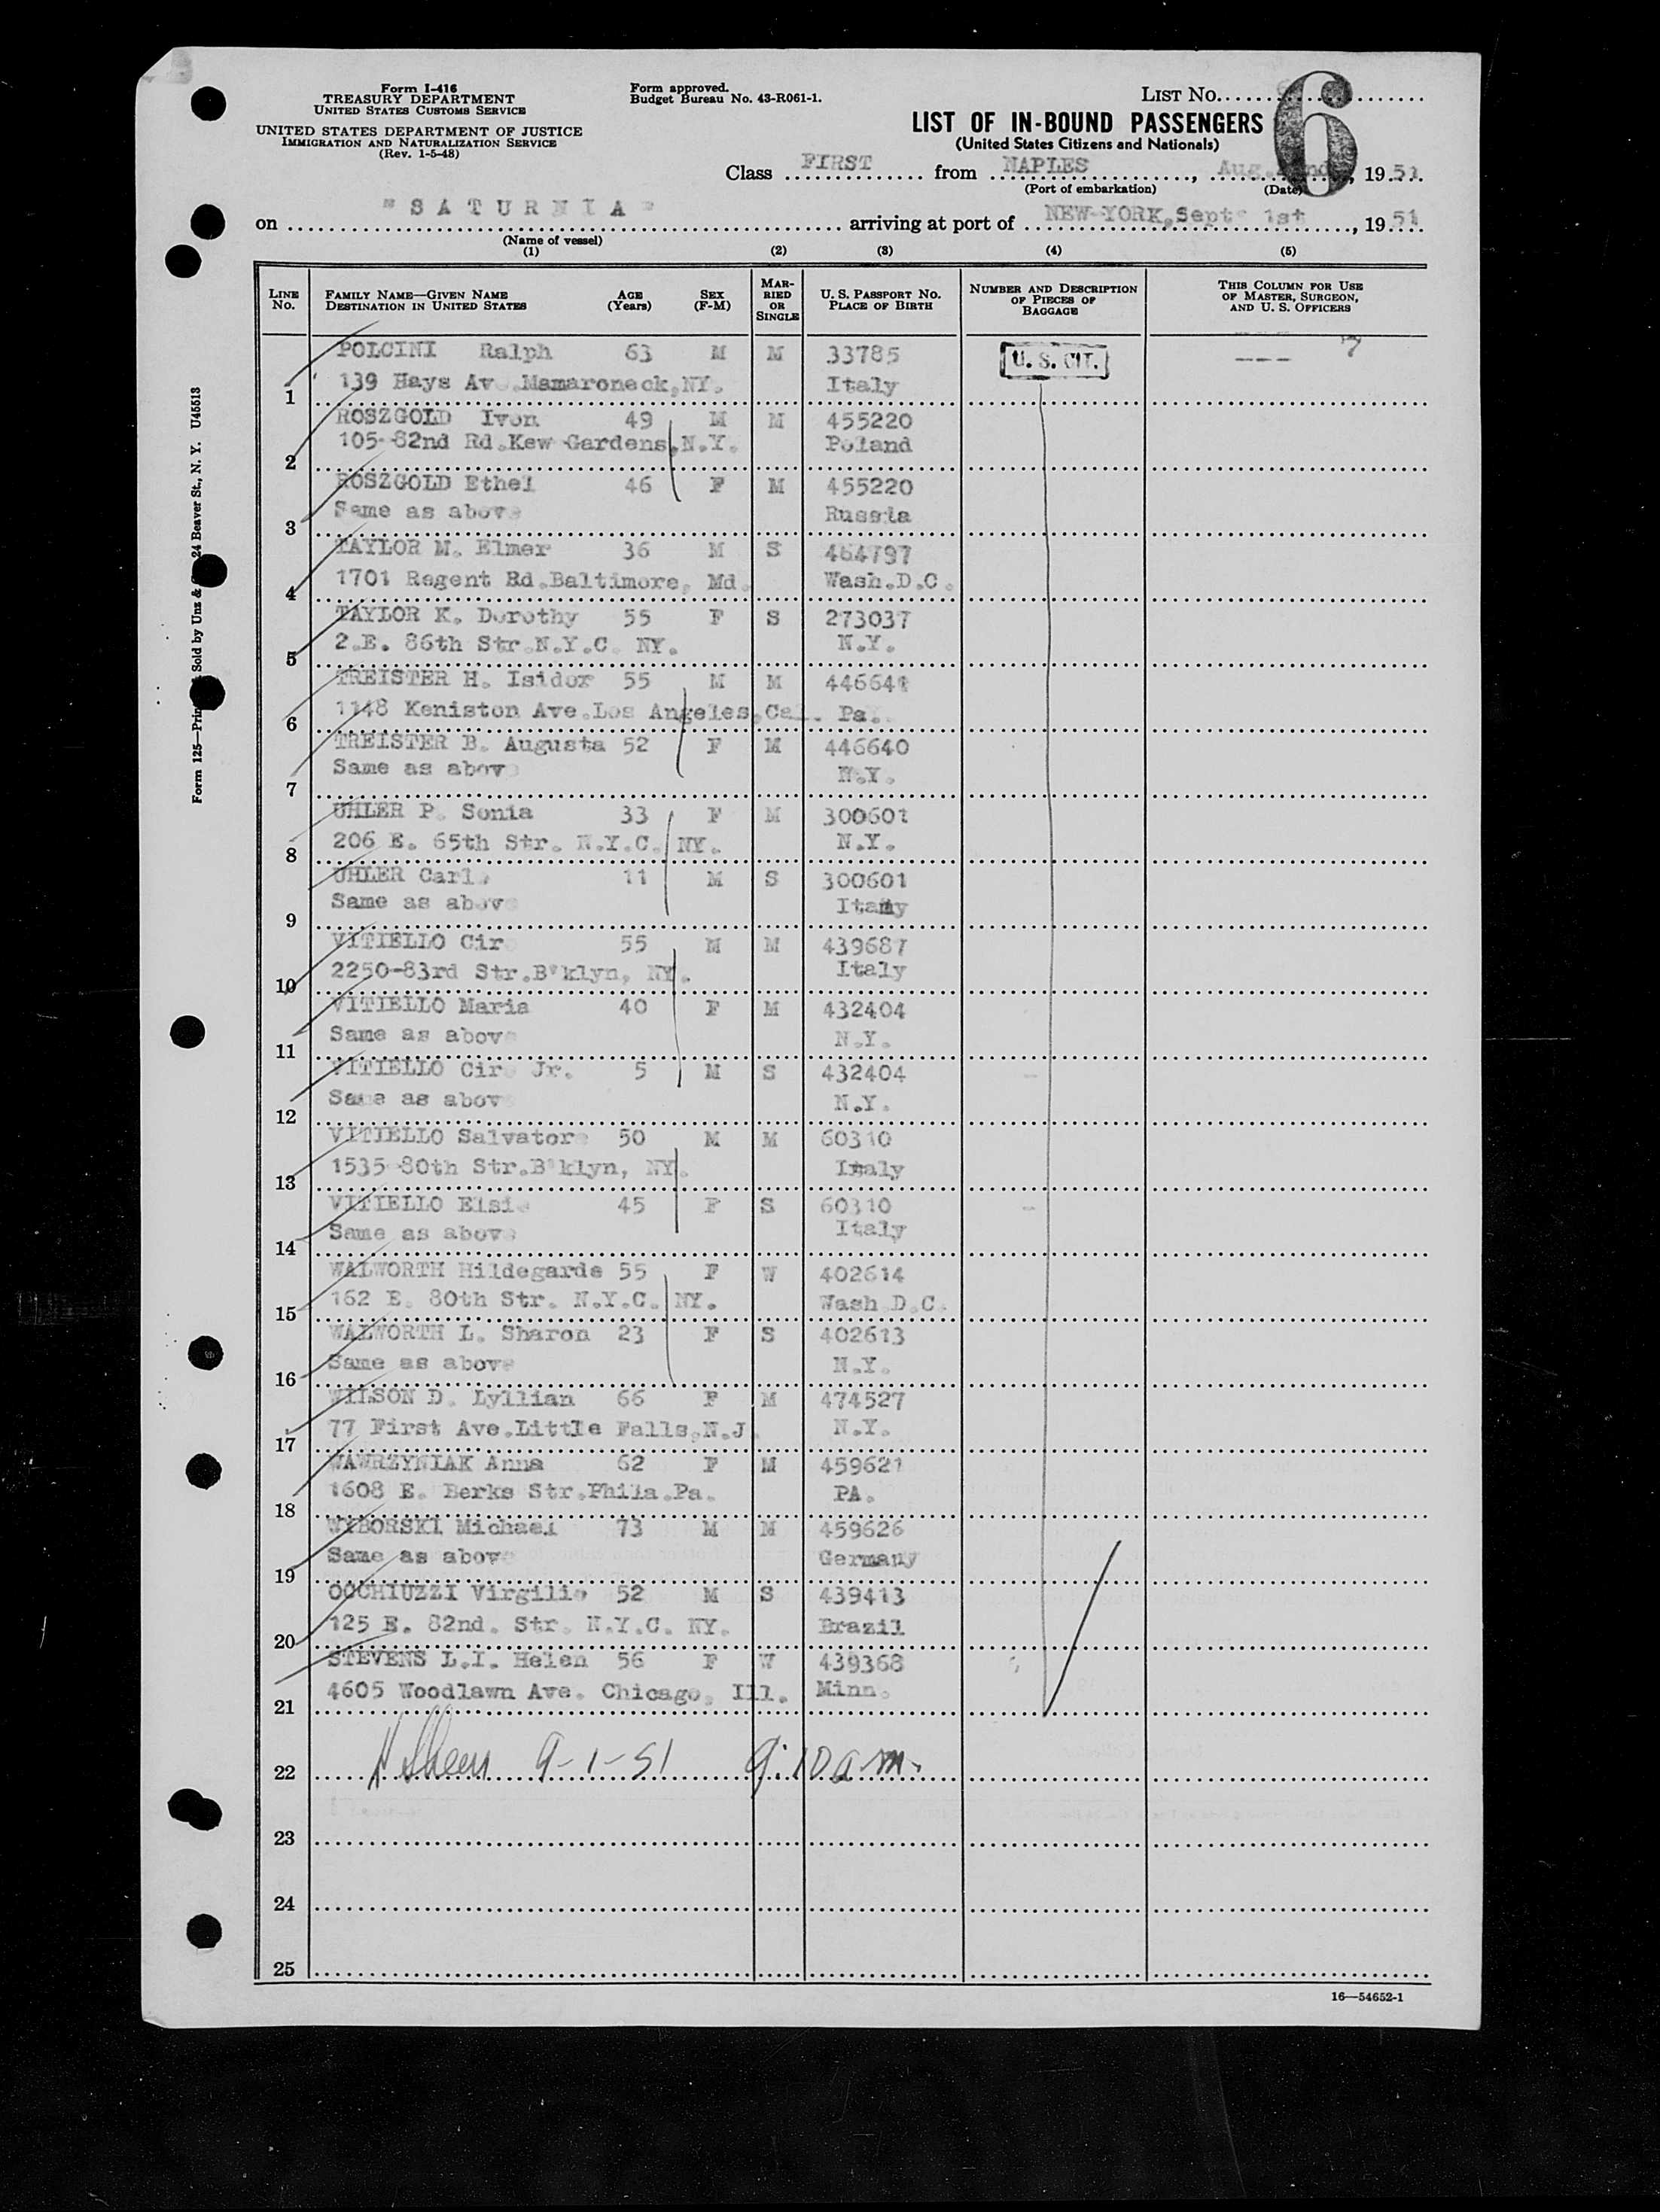 Form I-416
TREASURY DEPARTMENT
UNITED STATES CUSTOMS SERVICE
UNITED STATES DEPARTMENT OF JUSTICE
IMMIGRATION AND NATURALIZATION SERVICE
(Rev. 1-5-48)
Form approved.
Budget Bureau No. 43-R061-1.
LIST No.
6
LIST OF IN-BOUND PASSENGERS
(United States Citizens and Nationals)
Class FIRST from NAPLES, Aug. 1951
(Port of embarkation) (Date)
on "SATURNIA" arriving at port of NEW-YORK, Sept 1st, 1951
(Name of vessel)
(1) (2) (3) (4) (5)
LINE No. FAMILY NAME—GIVEN NAME DESTINATION IN UNITED STATES AGE (Years) SEX (F-M) MARRIED OR SINGLE U. S. PASSPORT No. PLACE OF BIRTH NUMBER AND DESCRIPTION OF PIECES OF BAGGAGE THIS COLUMN FOR USE OF MASTER, SURGEON, AND U. S. OFFICERS
POLCINI Ralph 63 M M 33785 U. S. CIT. --- 7
1 139 Hays Av .Mamaroneck,NY. Italy
ROSZGOLD Ivon 49 M M 455220
2 105-82nd Rd.Kew Gardens,N.Y. Poland
ROSZGOLD Ethel 46 F M 455220
3 Same as above Russia
TAYLOR M. Elmer 36 M S 464797
4 1701 Regent Rd.Baltimore, Md. Wash.D.C.
TAYLOR K. Dorothy 55 F S 273037
5 2.E. 86th Str.N.Y.C. NY. N.Y.
TREISTER H. Isidor 55 M M 446641
6 1148 Keniston Ave.Los Angeles,Cal. Pa.
TREISTER B. Augusta 52 F M 446640
7 Same as above N.Y.
UHLER P. Sonia 33 F M 300601
8 206 E. 65th Str. N.Y.C. NY. N.Y.
UHLER Carl 11 M S 300601
9 Same as above Itamy
VITIELLO Cir 55 M M 439687
10 2250-83rd Str.B'klyn, NY. Italy
VITIELLO Maria 40 F M 432404
11 Same as above N.Y.
VITIELLO Cir Jr. 5 M S 432404
12 Same as above N.Y.
VITIELLO Salvatore 50 M M 60310
13 1535-80th Str.B'klyn, NY. Italy
VITIELLO Elsie 45 F S 60310
14 Same as above Italy
WALWORTH Hildegarde 55 F W 402614
15 162 E. 80th Str. N.Y.C. NY. Wash.D.C.
WALWORTH L. Sharon 23 F S 402613
16 Same as above N.Y.
WILSON D. Lyllian 66 F M 474527
17 77 First Ave.Little Falls,N.J. N.Y.
WAWRZYNIAK Anna 62 F M 459621
18 1608 E. Berks Str.Phila.Pa. PA.
WYBORSKI Michael 73 M M 459626
19 Same as above Germany
OCCHIUZZI Virgilio 52 M S 439413
20 125 E. 82nd. Str. N.Y.C. NY. Brazil
STEVENS L.I. Helen 56 F W 439368
21 4605 Woodlawn Ave. Chicago, Ill. Minn.
22 9-1-51 9:10 a.m.
23
24
25
16—54652-1
Form 125— Sold by Unz & 24 Beaver St., N. Y. U45513